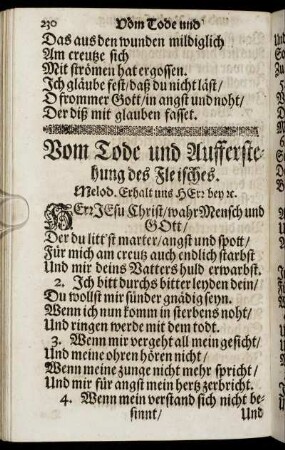 230 Vom Tode und
Das aus den wunden mildiglich
Am creutze sich
Mit strömen hat ergossen.
Ich gläube fest/ daß du nicht läst/
O frommer Gott/ in angst und noht/
Der diß mit glauben fasset.
Vom Tode und Aufferste-
hung des Fleisches.
Melod. Erhalt uns HErꝛ bey ꝛc.
HErꝛ JEsu Christ/ wahr Mensch und
GOtt/
Der du litt'st marter/ angst und spott/
Für mich am creutz auch endlich starbst
Und mir deins Vatters huld erwarbst.
2. Ich bitt durchs bitter leyden dein/
Du wollst mir sünder gnädig seyn.
Wenn ich nun komm in sterbens noht/
Und ringen werde mit dem todt.
3. Wenn mir vergeht all mein gesicht/
Und meine ohren hören nicht/
Wenn meine zunge nicht mehr spricht/
Und mir für angst mein hertz zerbricht.
4. Wenn mein verstand sich nicht be-
sinnt/ Und